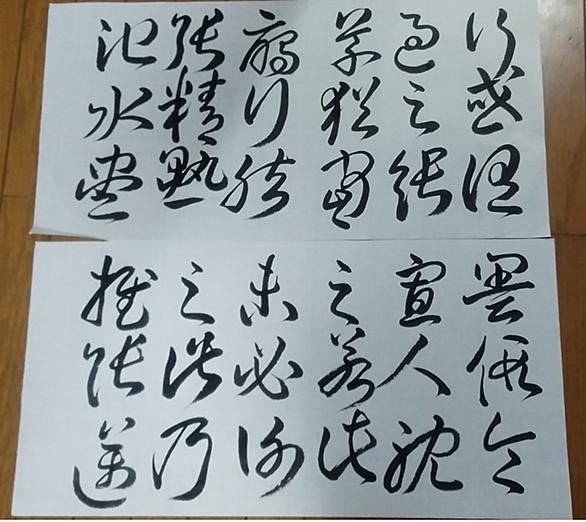 行或謂
過之張
草猶當
雁行然
張精熟
池水盡
墨假令
寡人耽
之若此
未必謝
之此乃
推張邁